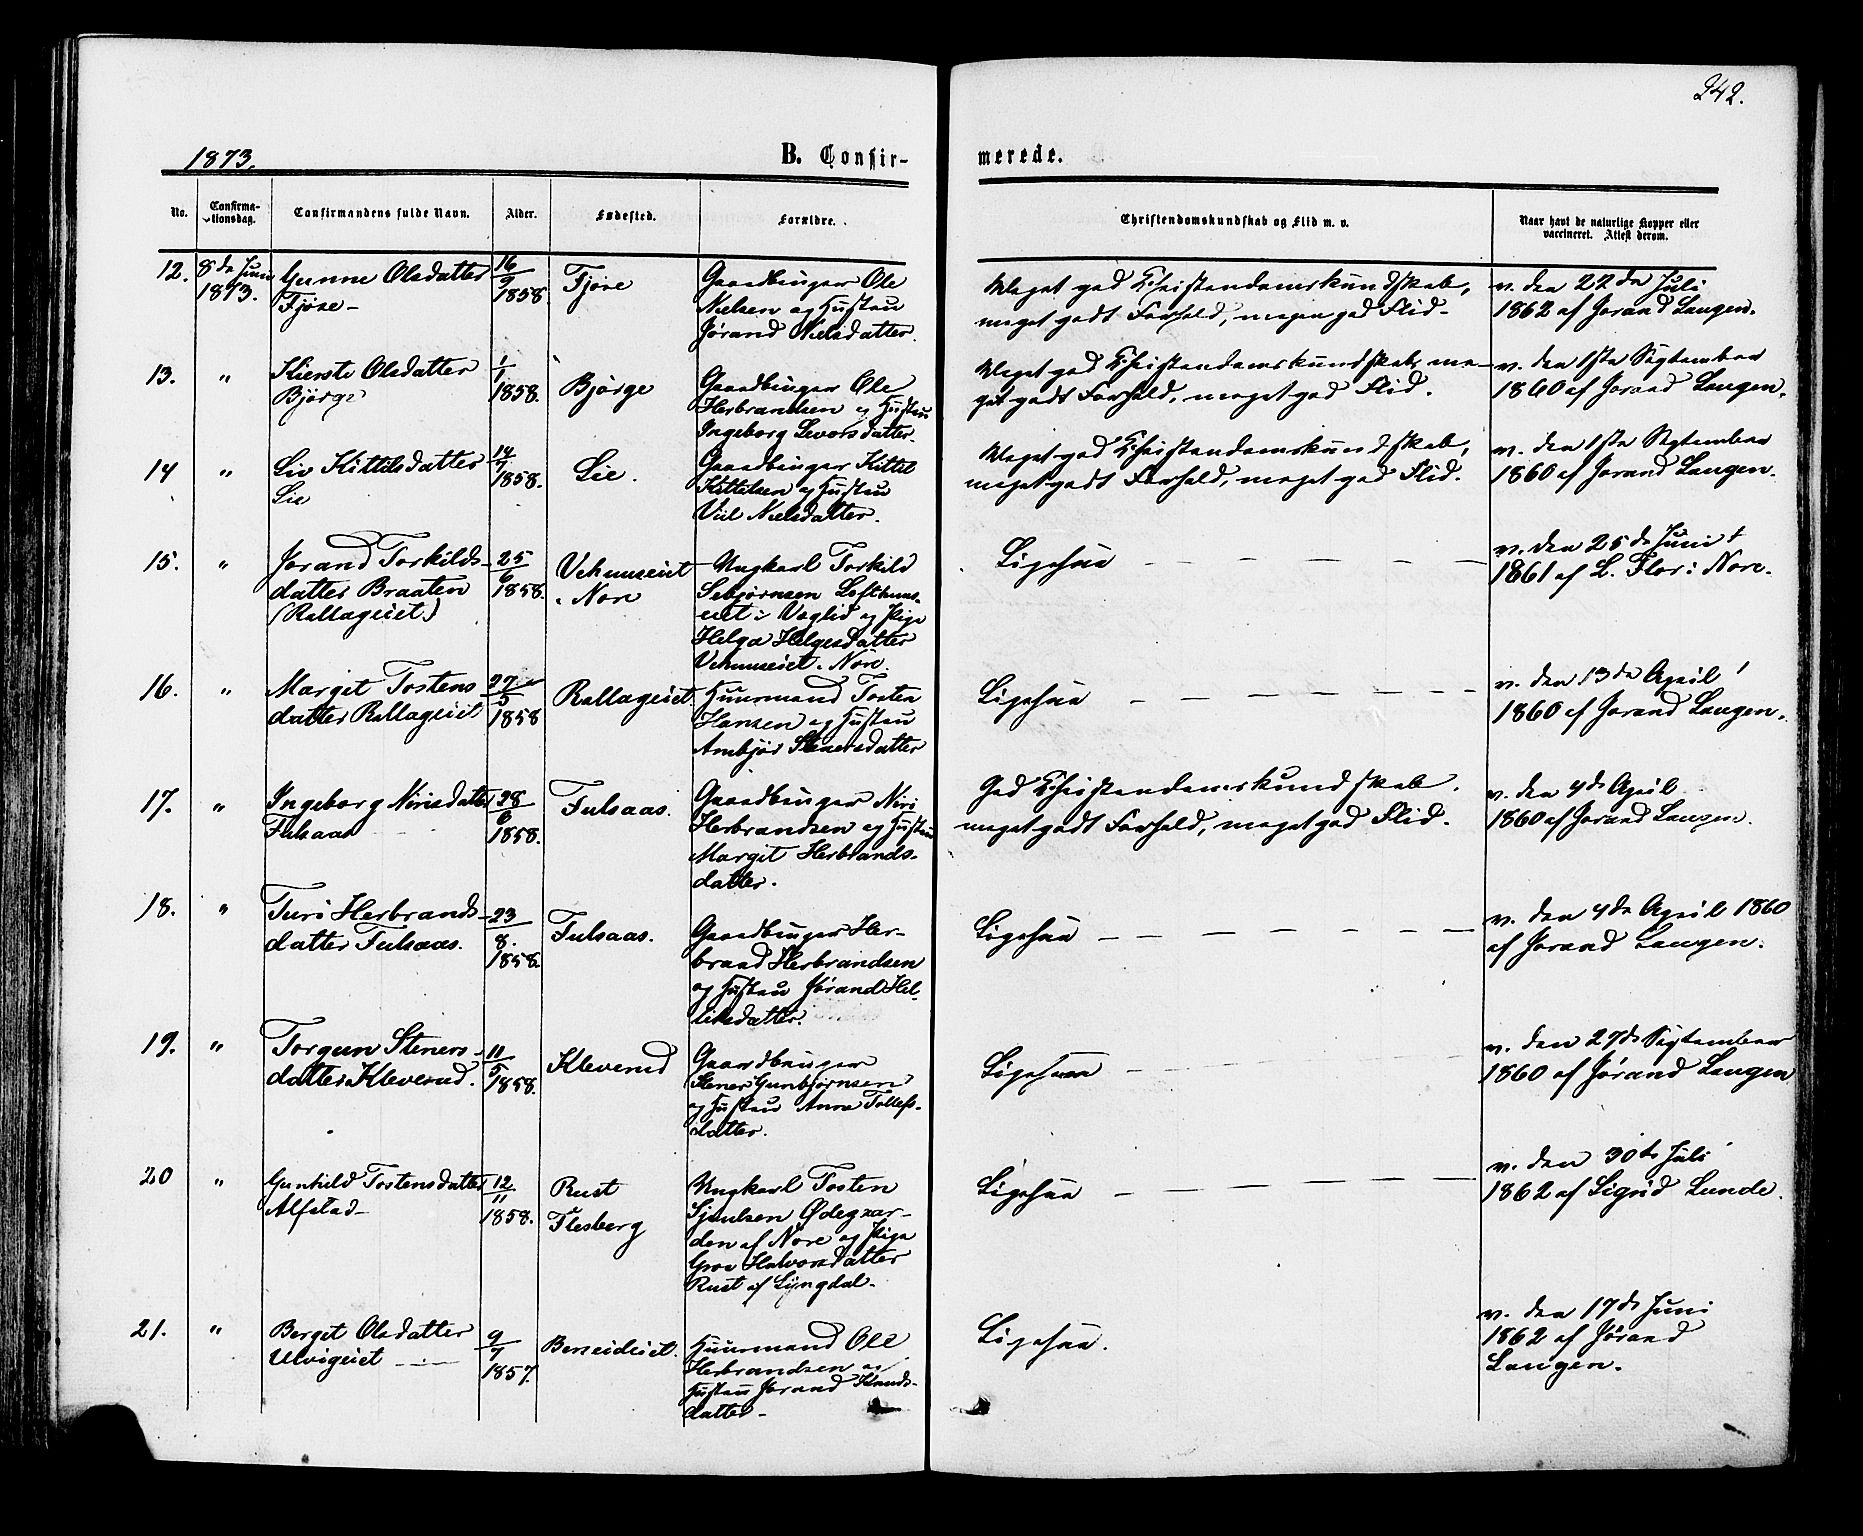 242.
1873.
B. Confirmerede.
No.
Confirmationsdag.
Confirmandens fulde Navn.
Alder.
Fødested.
Forældre.
Christendomskundskab og Flid m. v.
Naar havt de naturlige Kopper eller
vaccineret. Attest derom.
12. 8de Juni 1873. Gunne Olsdatter
Fjøse
16/9 1858.
Fjøse
Gaardbruger Ole
Nielsen og Hustru
Jørand Nielsdatter.
Meget god Christendomskundskab,
meget godt Forhold, megen god Flid.
v. den 22de Juli
1862 af Jorand Langen.
13. " Kierste Olsdatter
Bjørge
1/1 1858.
Bjørge
Gaardbruger Ole
Herbrandsen og Hustru
Ingeborg Levorsdatter.
Meget god Christendomskundskab, me-
get godt Forhold, meget god Flid.
v. den 1ste September
1860 af Jorand Langen.
14 " Liv Kittilsdatter
Lie
14/7 1858.
Lie.
Gaardbruger Kittel
Kittelsen og Hustru
Viil Nielsdatter.
Meget god Christendomskundskab,
meget godt Forhold, meget god Flid.
v. den 1ste September
1860 af Jorand Langen.
15. " Jorand Torkilds-
datter Braaten
(Rallageiet)
25/6 1858.
Vehuuseiet
i Nore
Ungkarl Torkild
Sebjørnsen Lofthuus-
eiet i Veglid og Pige
Helga Helgesdatter
Vehuuseiet i Nore.
Ligesaa
v. den 25de Juni
1861 af L. Flor i Nore.
16. " Margit Tostens
datter Rallageiet
27/5 1858
Rallageiet.
Huusmand Tosten
Hansen og Hustru
Ambjør Stenersdatter
Ligesaa
v. den 13de April
1860 af Jorand Langen.
17. " Ingeborg Nirisdatter
Fulsaas
28/6 1858.
Fulsaas.
Gaardbruger Niri
Herbrandsen og Hustru
Margit Herbrands-
datter.
God Christendomskundskab.
meget godt Forhold, meget god Flid.
v. den 4de April
1860 af Jorand Langen.
18. " Turi Herbrands-
datter Fulsaas.
23/8. 1858.
Fulsaas.
Gaardbruger Her-
brand Herbrandsen
og Hustru Jørand Hel-
liksdatter.
Ligesaa
v. den 4de April 1860
af Jorand Langen.
19. " Torgun Steners-
datter Kleverud.
11/5 1858.
Kleverud
Gaardbruger
Stener Gunbjørnsen
og Hustru Anne Tollefs-
datter.
Ligesaa
v. den 27de September
1860 af Jørand Langen
20 " Gunhild Tostensdatter
Alfstad
12/11 1858.
Rust
Flesberg
Ungkarl Tosten
Sjulsen Ødegaar-
den af Nore og Pige
Groe Halvorsdatter
Rust af Lyngdal.
Ligesaa
v. den 30te Juli
1862 af Sigrid Lunde.
21. " Berget Olsdatter
Ulvigeiet
9/7 1857.
Huusmand Ole
Herbrandsen og
Hustru Jorand Knuds-
datter
Ligesaa.
v. den 17de Juni
1862 af Jørand
Langen.